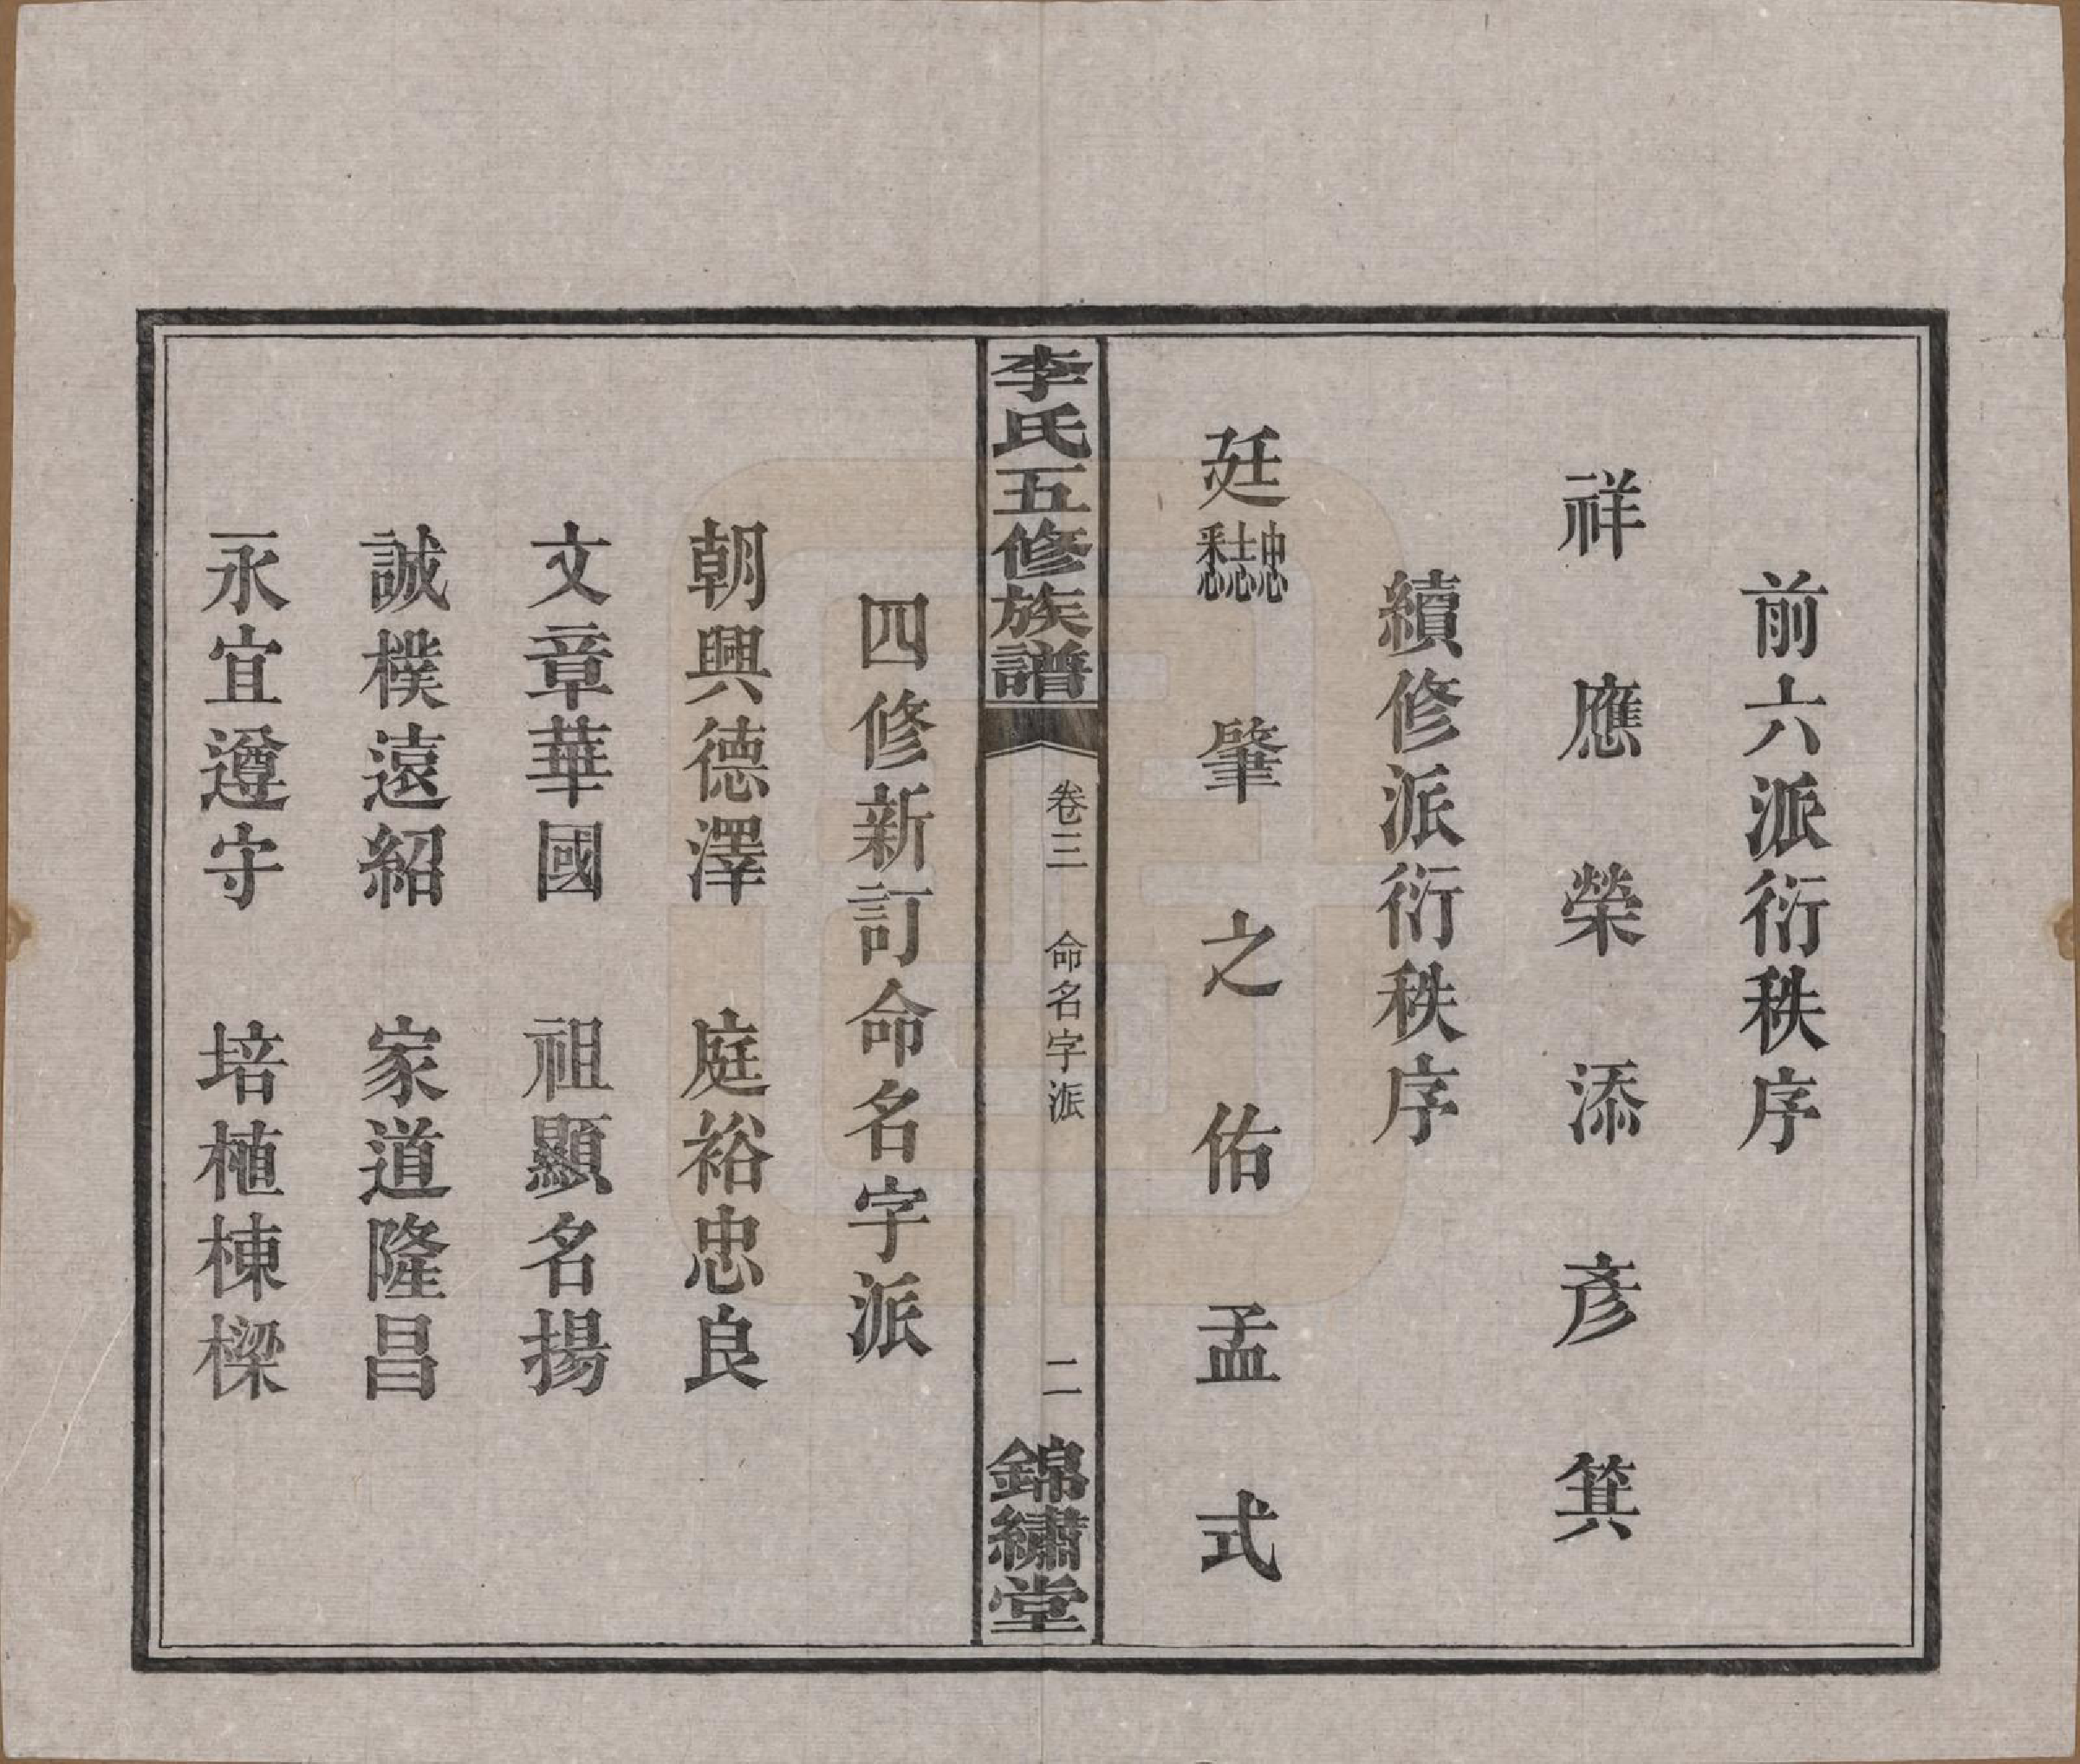 前六派衍秩序
祥應榮添彥箕
續修派衍秩序
廷忠志悉肇之佑孟式
李氏五修族譜 卷三 命名字派 二 錦繡堂
四修新訂命名字派
朝興德澤 庭裕忠良
文章華國 祖顯名揚
誠樸遠紹 家道隆昌
永宜遵守 培植棟樑